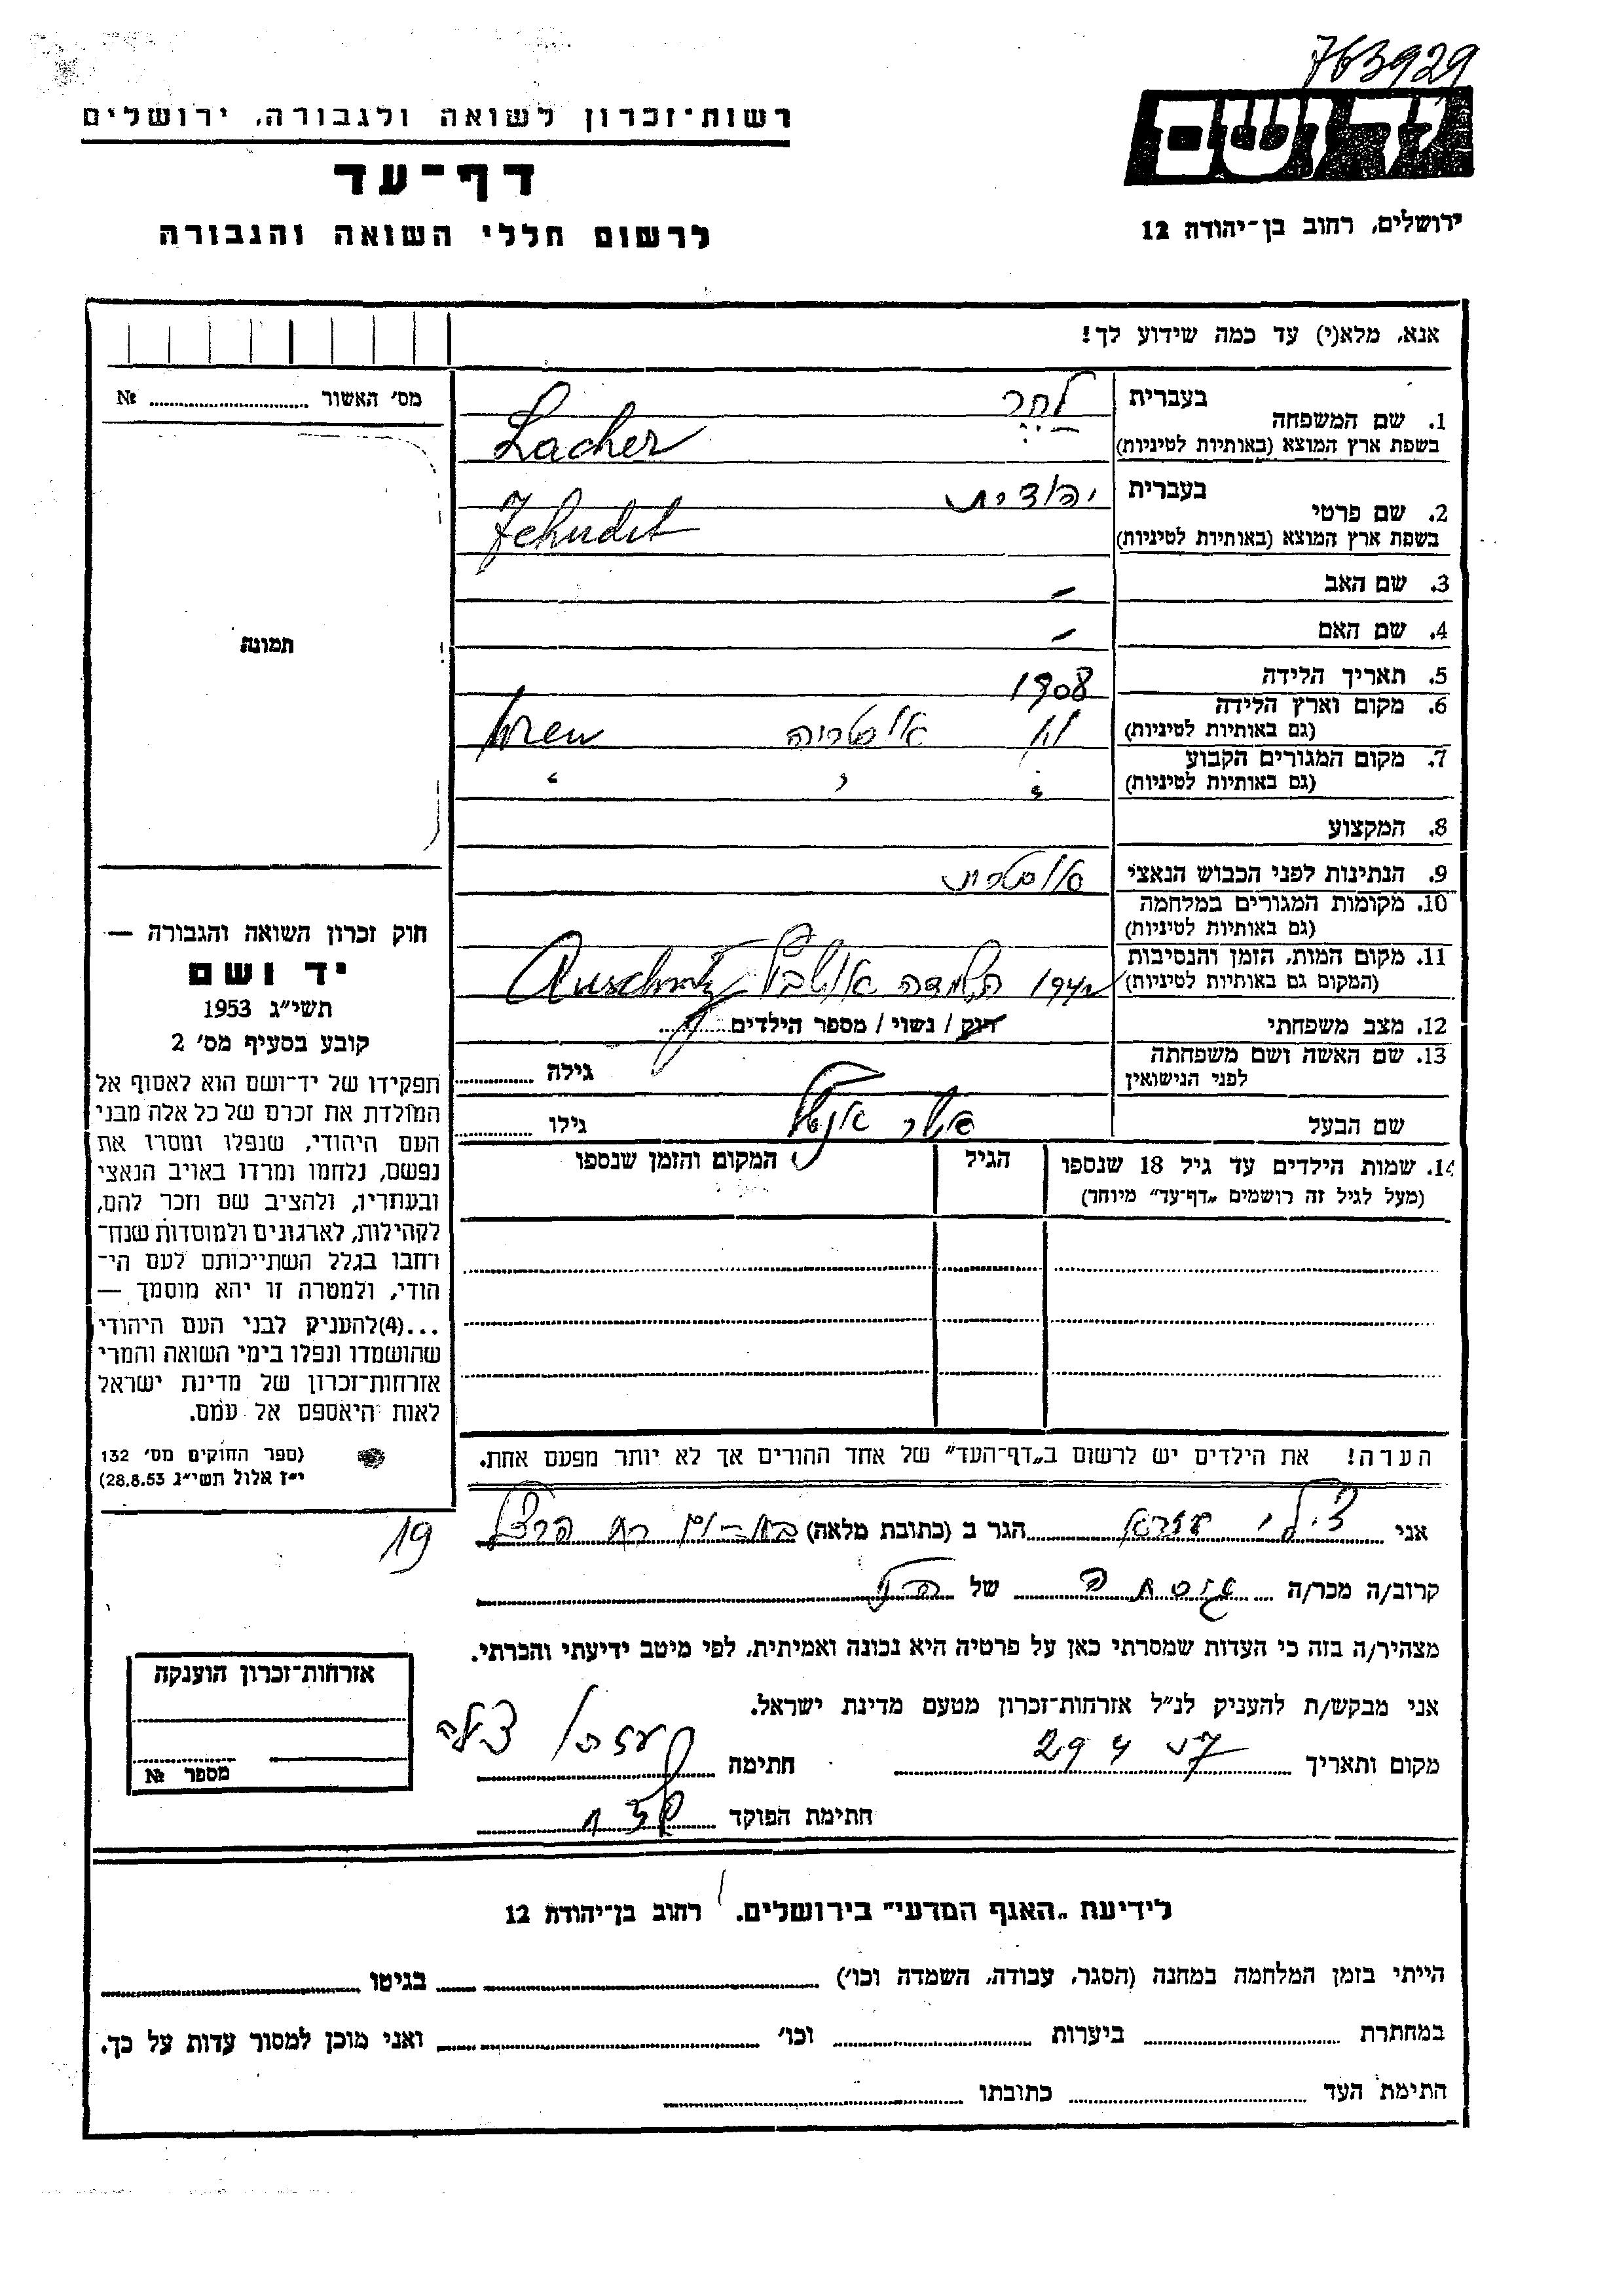 763929
יד ושם
רשות־זכרון לשואה ולגבורה, ירושלים
דף־עד
לרשום חללי השואה והגבורה
ירושלים, רחוב בן־יהודה 12
אנא, מלא(י) עד כמה שידוע לך!
מס' האשור № 
בעברית לחר
1. שם המשפחה
בשפת ארץ המוצא (באותיות לטיניות) Lacher
בעברית יהודית
2. שם פרטי
בשפת ארץ המוצא (באותיות לטיניות) Jehudit
3. שם האב -
4. שם האם -
תמונה
5. תאריך הלידה 1908
6. מקום וארץ הלידה
(גם באותיות לטיניות) וין אוסטריה Wien
7. מקום המגורים הקבוע
(גם באותיות לטיניות) " " "
8. המקצוע
9. הנתינות לפני הכבוש הנאצי אוסטרית
10. מקומות המגורים במלחמה
(גם באותיות לטיניות)
11. מקום המות, הזמן והנסיבות
(המקום גם באותיות לטיניות) 1942 השמדה אושבץ Auschwitz
12. מצב משפחתי רווק / נשוי / מספר הילדים
13. שם האשה ושם משפחתה
לפני הנישואין גילה
שם הבעל אשר גילו
14. שמות הילדים עד גיל 18 שנספו הגיל המקום והזמן שנספו
(מעל לגיל זה רושמים "דף־עד" מיוחד)
חוק זכרון השואה והגבורה —
יד ושם
תשי"ג 1953
קובע בסעיף מס' 2
תפקידו של יד־ושם הוא לאסוף אל
המולדת את זכרם של כל אלה מבני
העם היהודי, שנפלו ומסרו את
נפשם, נלחמו ומרדו באויב הנאצי
ובעוזריו, ולהציב שם וזכר להם,
לקהילות, לארגונים ולמוסדות שנח־
רחבו בגלל השתייכותם לעם הי־
הודי, ולמטרה זו יהא מוסמך —
...(4)להעניק לבני העם היהודי
שהושמדו ונפלו בימי השואה והמרי
אזרחות־זכרון של מדינת ישראל
לאות היאספם אל עמם.
(ספר החוקים מס' 132
י"ז אלול תשי"ג 28.8.53)
הערה! את הילדים יש לרשום ב"דף־העד" של אחד ההורים אך לא יותר מפעם אחת.
אני צילי עזרא הגר ב (כתובת מלאה) בת-ים רח הרצל 19
קרוב/ה מכר/ה של
מצהיר/ה בזה כי העדות שמסרתי כאן על פרטיה היא נכונה ואמיתית, לפי מיטב ידיעתי והכרתי.
אני מבקש/ת להעניק לנ"ל אזרחות־זכרון מטעם מדינת ישראל.
מקום ותאריך 29 4 57 חתימה עזרא צילה
חתימת הפוקד
אזרחות־זכרון הוענקה
מספר №
לידיעת "האגף המדעי" בירושלים, רחוב בן־יהודה 12
הייתי בזמן המלחמה במחנה (הסגר, עבודה, השמדה וכו') בגיטו
במחתרת ביערות וכו' ואני מוכן למסור עדות על כך.
חתימת העד כתובתו